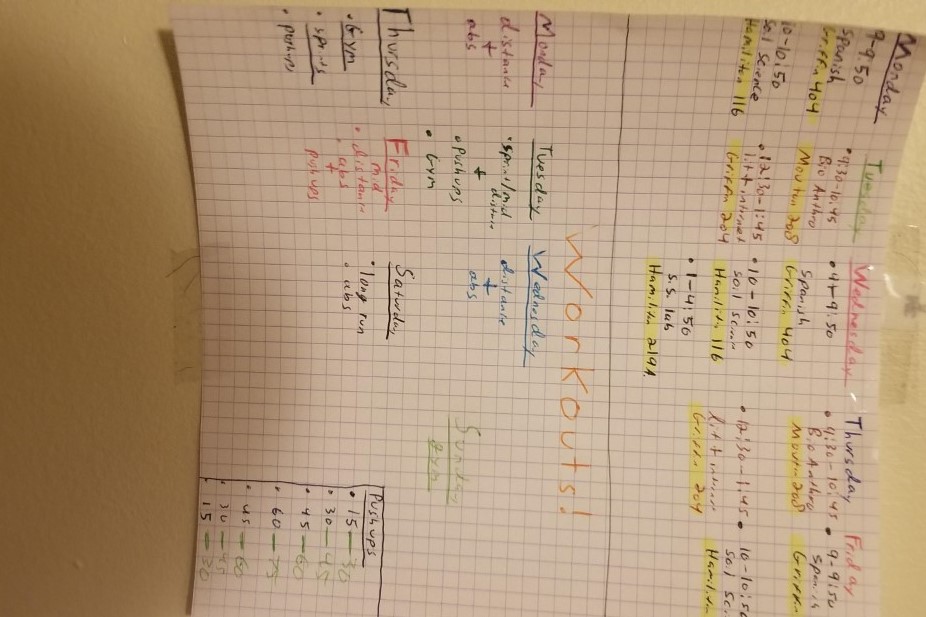 Monday
9-9:50
Spanish
Griffin 404
10-10:50
Soil Science
Hamilton 116
Tuesday
• 9:30-10:45
Bio Anthro
Morton 208
• 12:30-1:45
Griffin 204
Wednesday
9:50
Spanish
Griffin 404
• 10-10:50
Soil
Hamilton 116
• 1-4:50
S.S. lab
Hamilton
Thursday
• 9:30-10:45
Bio Anthro
Morton 208
• 12:30-1:45
Griffin 204
Friday
• 9-9:50
Spanish
Griffin
• 10-10:50
Soil Sci
Hamilton
Workouts!
Monday
distance
+
abs
Tuesday
• sprint/mid
distance
+
• pushups
• Gym
Wednesday
distance
+
abs
Thursday
• Gym
• sprints
• pushups
Friday
• mid
distance
+
• abs
pushups
Saturday
• long run
• abs
Sunday
gym
Pushups
• 15 — 30
• 30 — 45
• 45 — 60
• 60 — 75
• 45 — 60
• 30 — 45
• 15 — 30